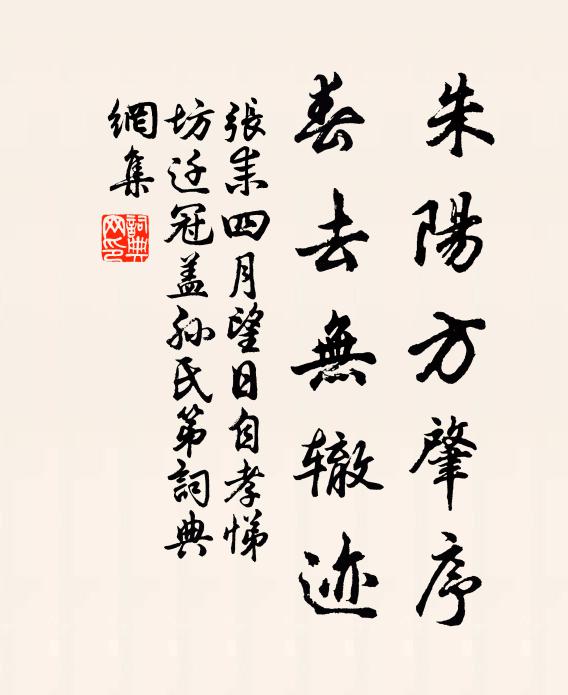 朱陽方肇序
春去無辙迹
張耒四月望日自孝悌
坊迁冠盖孙氏第詞典
網集
詞典
网印